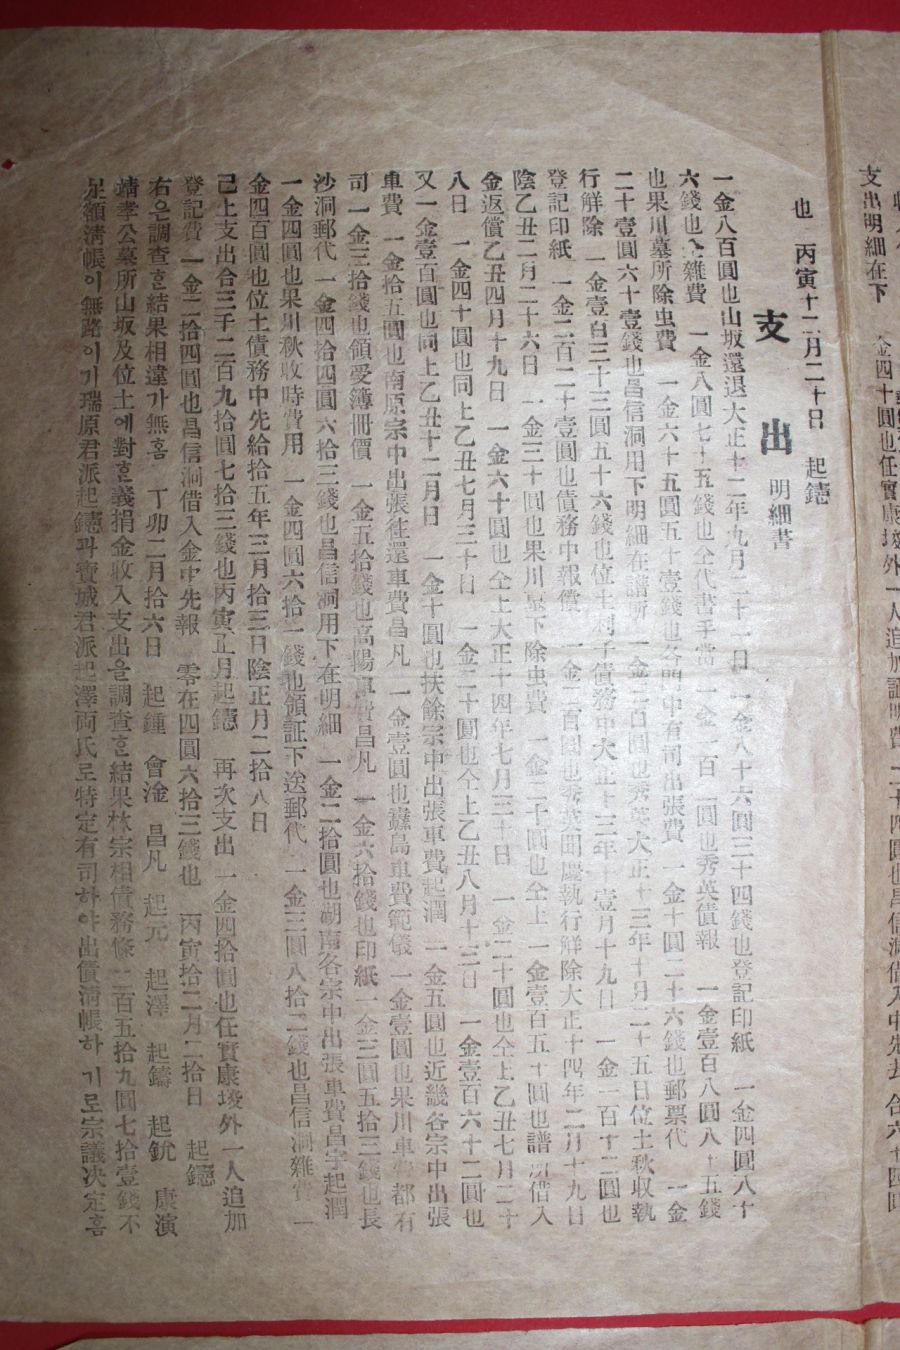 支出明細在下 金四十圓也任實康埈外一人追加証明費 二十四圓也昌信洞借入中先去 合六十四
也 丙寅十二月二十日 起鑢
支出 明細書
一金八百圓也山坂還退大正十二年九月二十一日 一金八十六圓三十四錢也登記印紙 一金四圓八十
六錢也仝雜費 一金八圓七十五錢也仝代書手當 一金二百 圓也秀英債報 一金壹百八圓八十五錢
也果川墓所除虫費 一金六十五圓五十壹錢也各門中有司出張費 一金十圓二十六錢也郵票代 一金
二十壹圓六十壹錢也昌信洞用下明細在譜所 一金三百圓也秀英大正十三年十月二十五日位土秋収執
行解除 一金壹百三十三圓五十六錢也位土利子債務中大正十三年十壹月十九日 一金二百十二圓也
登記印紙 一金二百二十壹圓也債務中報償 一金二百圓也秀英聞慶執行解除大正十四年二月十九日
陰乙丑二月二十六日 一金三十圓也果川墓下除虫費 一金二十圓也仝上 一金壹百五十圓也譜所借入
金返償乙丑四月十九日 一金六十圓也仝上大正十四年七月三十日 一金二十圓也仝上乙丑七月二十
八日 一金四十圓也同上乙丑七月三十日 一金二十圓也仝上乙丑八月十三日 一金壹百六十二圓也
又一金壹百圓也同上乙丑十二月日 一金十圓也扶餘宗中出張車費起潤 一金五圓也近畿各宗中出張
車費 一金拾五圓也南原宗中出張徃還車費昌凡 一金壹圓也纛島車費範儀 一金壹圓也果川車費都有
司 一金三拾錢也領受簿冊價 一金五拾錢也高陽車費昌凡 一金六拾錢也印紙 一金三圓五拾三錢也長
沙洞郵代 一金四拾四圓六拾三錢也昌信洞用下在明細 一金二拾圓也湖南各宗中出張車費昌宇起潤
一金四圓也果川秋收時費用 一金四圓六拾二錢也領証下送郵代 一金三圓八拾二錢也昌信洞雜費 一
金四百圓也位土債務中先給拾五年三月拾三日陰正月二拾八日
已上支出合三千二百九拾圓七拾三錢也丙寅正月起鑢 再次支出 一金四拾圓也任實康埈外一人追加
登記費 一金二拾四圓也昌信洞借入金中先報 零在四圓六拾三錢也 丙寅拾二月二拾日 起鑢
右은調査한結果相違가無홈 丁卯二月拾六日 起鍾 會淦 昌凡 起元 起澤 起鑄 起銑 康演
靖孝公墓所山坂及位土에對한義捐金收入支出을調査한結果林宗相債務條二百五拾九圓七拾壹錢不
足額淸帳이無路이기瑞原君派起鑢과寶城君派起澤両氏로特定有司하야出債淸帳하기로宗議決定홈